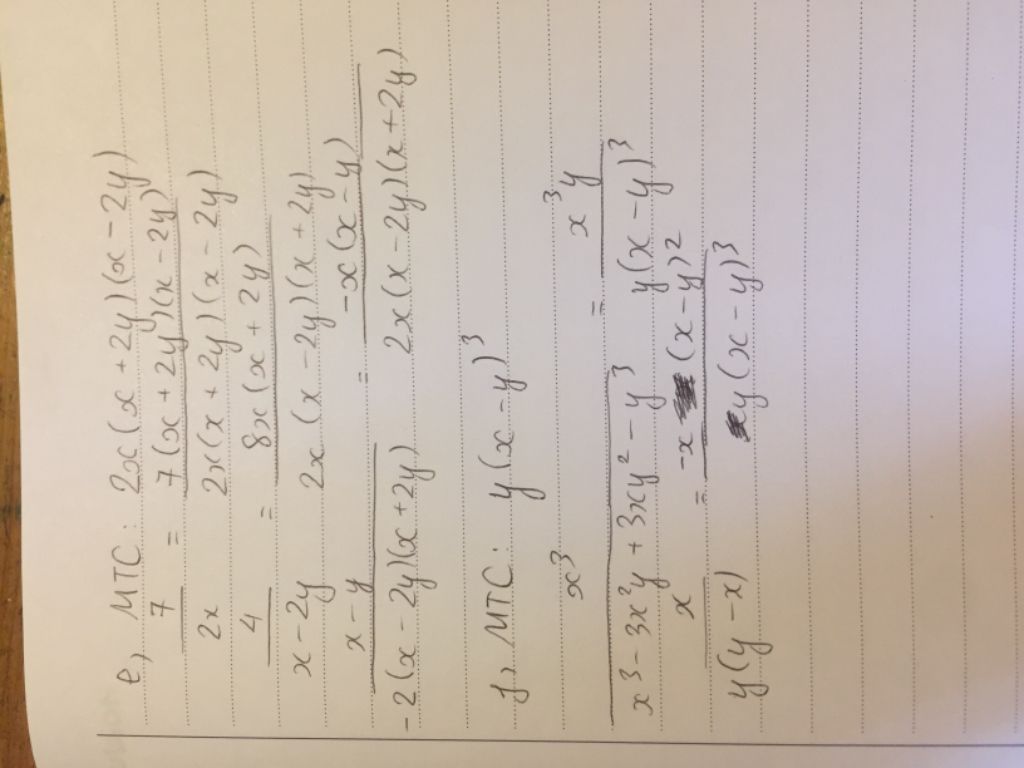 e, MTC: 2x(x + 2y)(x - 2y)
7/2x = 7(x + 2y)(x - 2y)/2x(x + 2y)(x - 2y)
4/x - 2y = 8x(x + 2y)/2x(x - 2y)(x + 2y)
x - y/-2(x - 2y)(x + 2y) = -x(x - y)/2x(x - 2y)(x + 2y)
f, MTC: y(x - y)³
x³/x³ - 3x²y + 3xy² - y³ = x³y/y(x - y)³
x/y(y - x) = -x(x - y)²/y(x - y)³